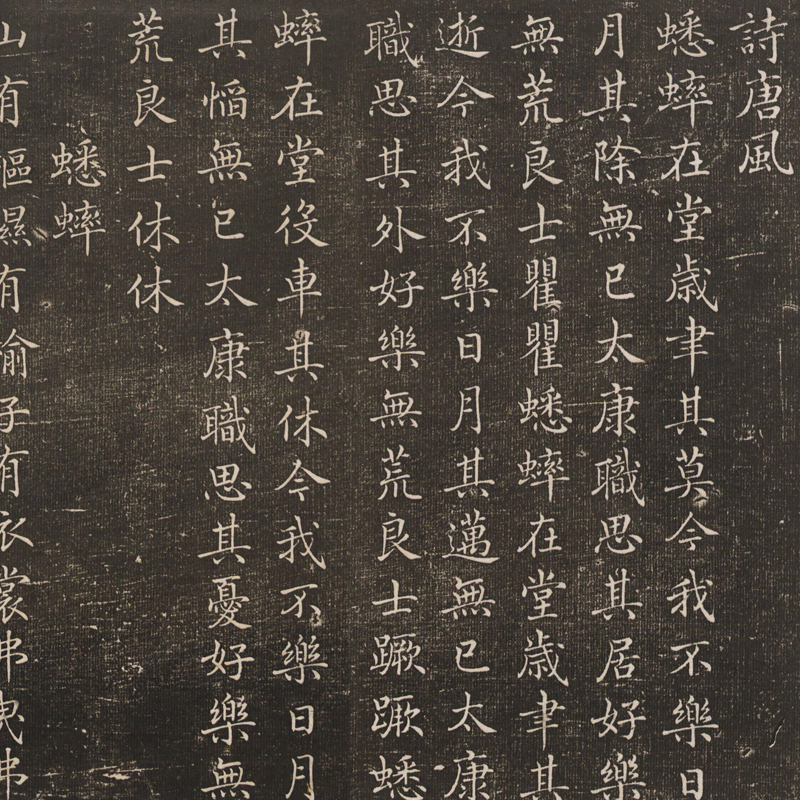 詩唐風
蟋蟀在堂歲聿其莫今我不樂日
月其除無已大康職思其居好樂
無荒良士瞿瞿蟋蟀在堂歲聿其
逝今我不樂日月其邁無已太康
職思其外好樂無荒良士蹶蹶蟋
蟀在堂役車其休今我不樂日月
其慆無已太康職思其憂好樂無
荒良士休休
蟋蟀
山有樞隰有榆子有衣裳弗曳弗